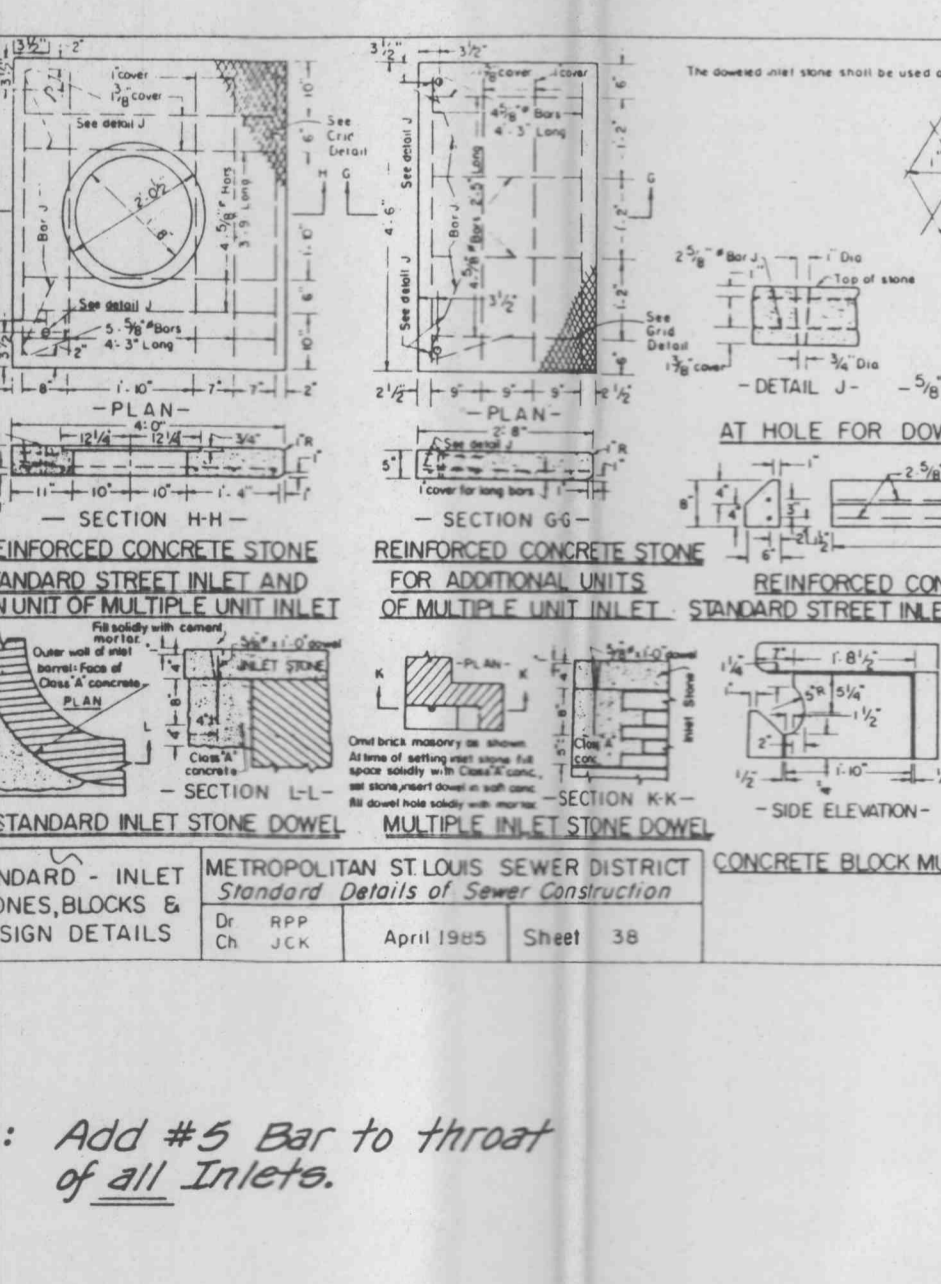 3 1/2" 2"
1" cover
1 3/8" cover
See detail J
See
Grid
Detail
H G
2'-0 1/2"
1'-8"
Bar J
4-5/8"ø Bars
3'-9" Long
10"
6"
1'-10"
6"
10"
See detail J
5-5/8"ø Bars
4'-3" Long
8" 1'-10" 7" 7" 2"
-PLAN-
4'-0"
12 1/4" 12 1/4" 3/4" 1"R
11" 10" 10" 1'-4" 1"
- SECTION H-H -
EINFORCED CONCRETE STONE
ANDARD STREET INLET AND
N UNIT OF MULTIPLE UNIT INLET
3 1/2" 3 1/2"
cover 1" cover
4-5/8"ø Bars
4'-3" Long
See detail J
4'-6"
Bar J
2'-5" Long
See detail J
3 1/2"
6"
1'-2"
1'-2"
1'-2"
6"
G
See
Grid
Detail
2 1/2" 9" 9" 9" 2 1/2"
-PLAN-
2'-8"
See detail J
5" 1"R
1" cover for long bars 1"
- SECTION G-G -
REINFORCED CONCRETE STONE
FOR ADDITIONAL UNITS
OF MULTIPLE UNIT INLET
The doweled inlet stone shall be used
2 5/8"ø Bar J 1" Dia
Top of stone
1 3/8" cover 3/4" Dia
- DETAIL J -
5/8"
AT HOLE FOR DOW
8" 4" 4" 1" 3" 2" 1 1/2" 6"
2-5/8"
REINFORCED CON
STANDARD STREET INLE
Fill solidly with cement
mortar.
Outer wall of inlet
barrel: Face of
Class "A" concrete
PLAN
L
5/8"ø x 1'-0" dowel
INLET STONE
4"
8"
4"
4"
Class "A"
concrete
- SECTION L-L -
STANDARD INLET STONE DOWEL
-PLAN-
K K
Omit brick masonry as shown.
At time of setting inlet stone fill
space solidly with Class "A" conc.,
set stone, insert dowel in soft conc.
fill dowel hole solidly with mortar.
5/8"ø x 1'-0" dowel
Inlet Stone
4"
8"
5"
Class "A"
conc.
- SECTION K-K -
MULTIPLE INLET STONE DOWEL
7" 1'-8 1/2"
1 1/4"
1" 5"R 5 1/4"
1 1/2"
2"
1/2" 1'-10"
- SIDE ELEVATION -
CONCRETE BLOCK MU
NDARD - INLET
ONES, BLOCKS &
SIGN DETAILS
METROPOLITAN ST. LOUIS SEWER DISTRICT
Standard Details of Sewer Construction
Dr RPP
Ch JCK
April 1985
Sheet 38
: Add #5 Bar to throat
of all Inlets.